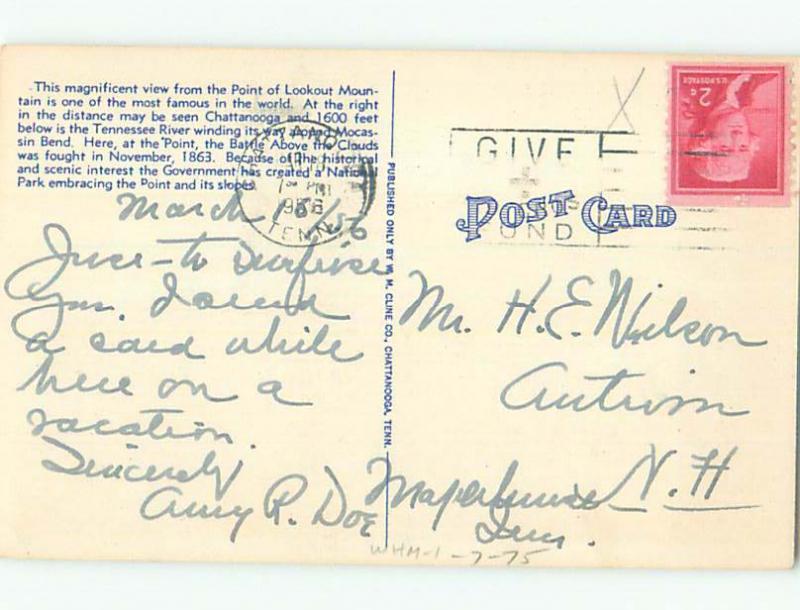 This magnificent view from the Point of Lookout Moun-
tain is one of the most famous in the world. At the right
in the distance may be seen Chattanooga and 1600 feet
below is the Tennessee River winding its way around Mocas-
sin Bend. Here, at the Point, the Battle Above the Clouds
was fought in November, 1863. Because of the historical
and scenic interest the Government has created a National
Park embracing the Point and its slopes.
March 18/56
Just to surprise
you. I send
a card while
here on a
vacation.
Sincerely
Amy R. Doe
PUBLISHED ONLY BY W. M. CLINE CO., CHATTANOOGA, TENN.
1 30 PM
1956
TENN.
GIVE
UND
U.S. POSTAGE
2¢
POST CARD
Mr. H. E. Wilson
Antrim
N. H
Maplehurst
Inn.
WHM-1-7-75